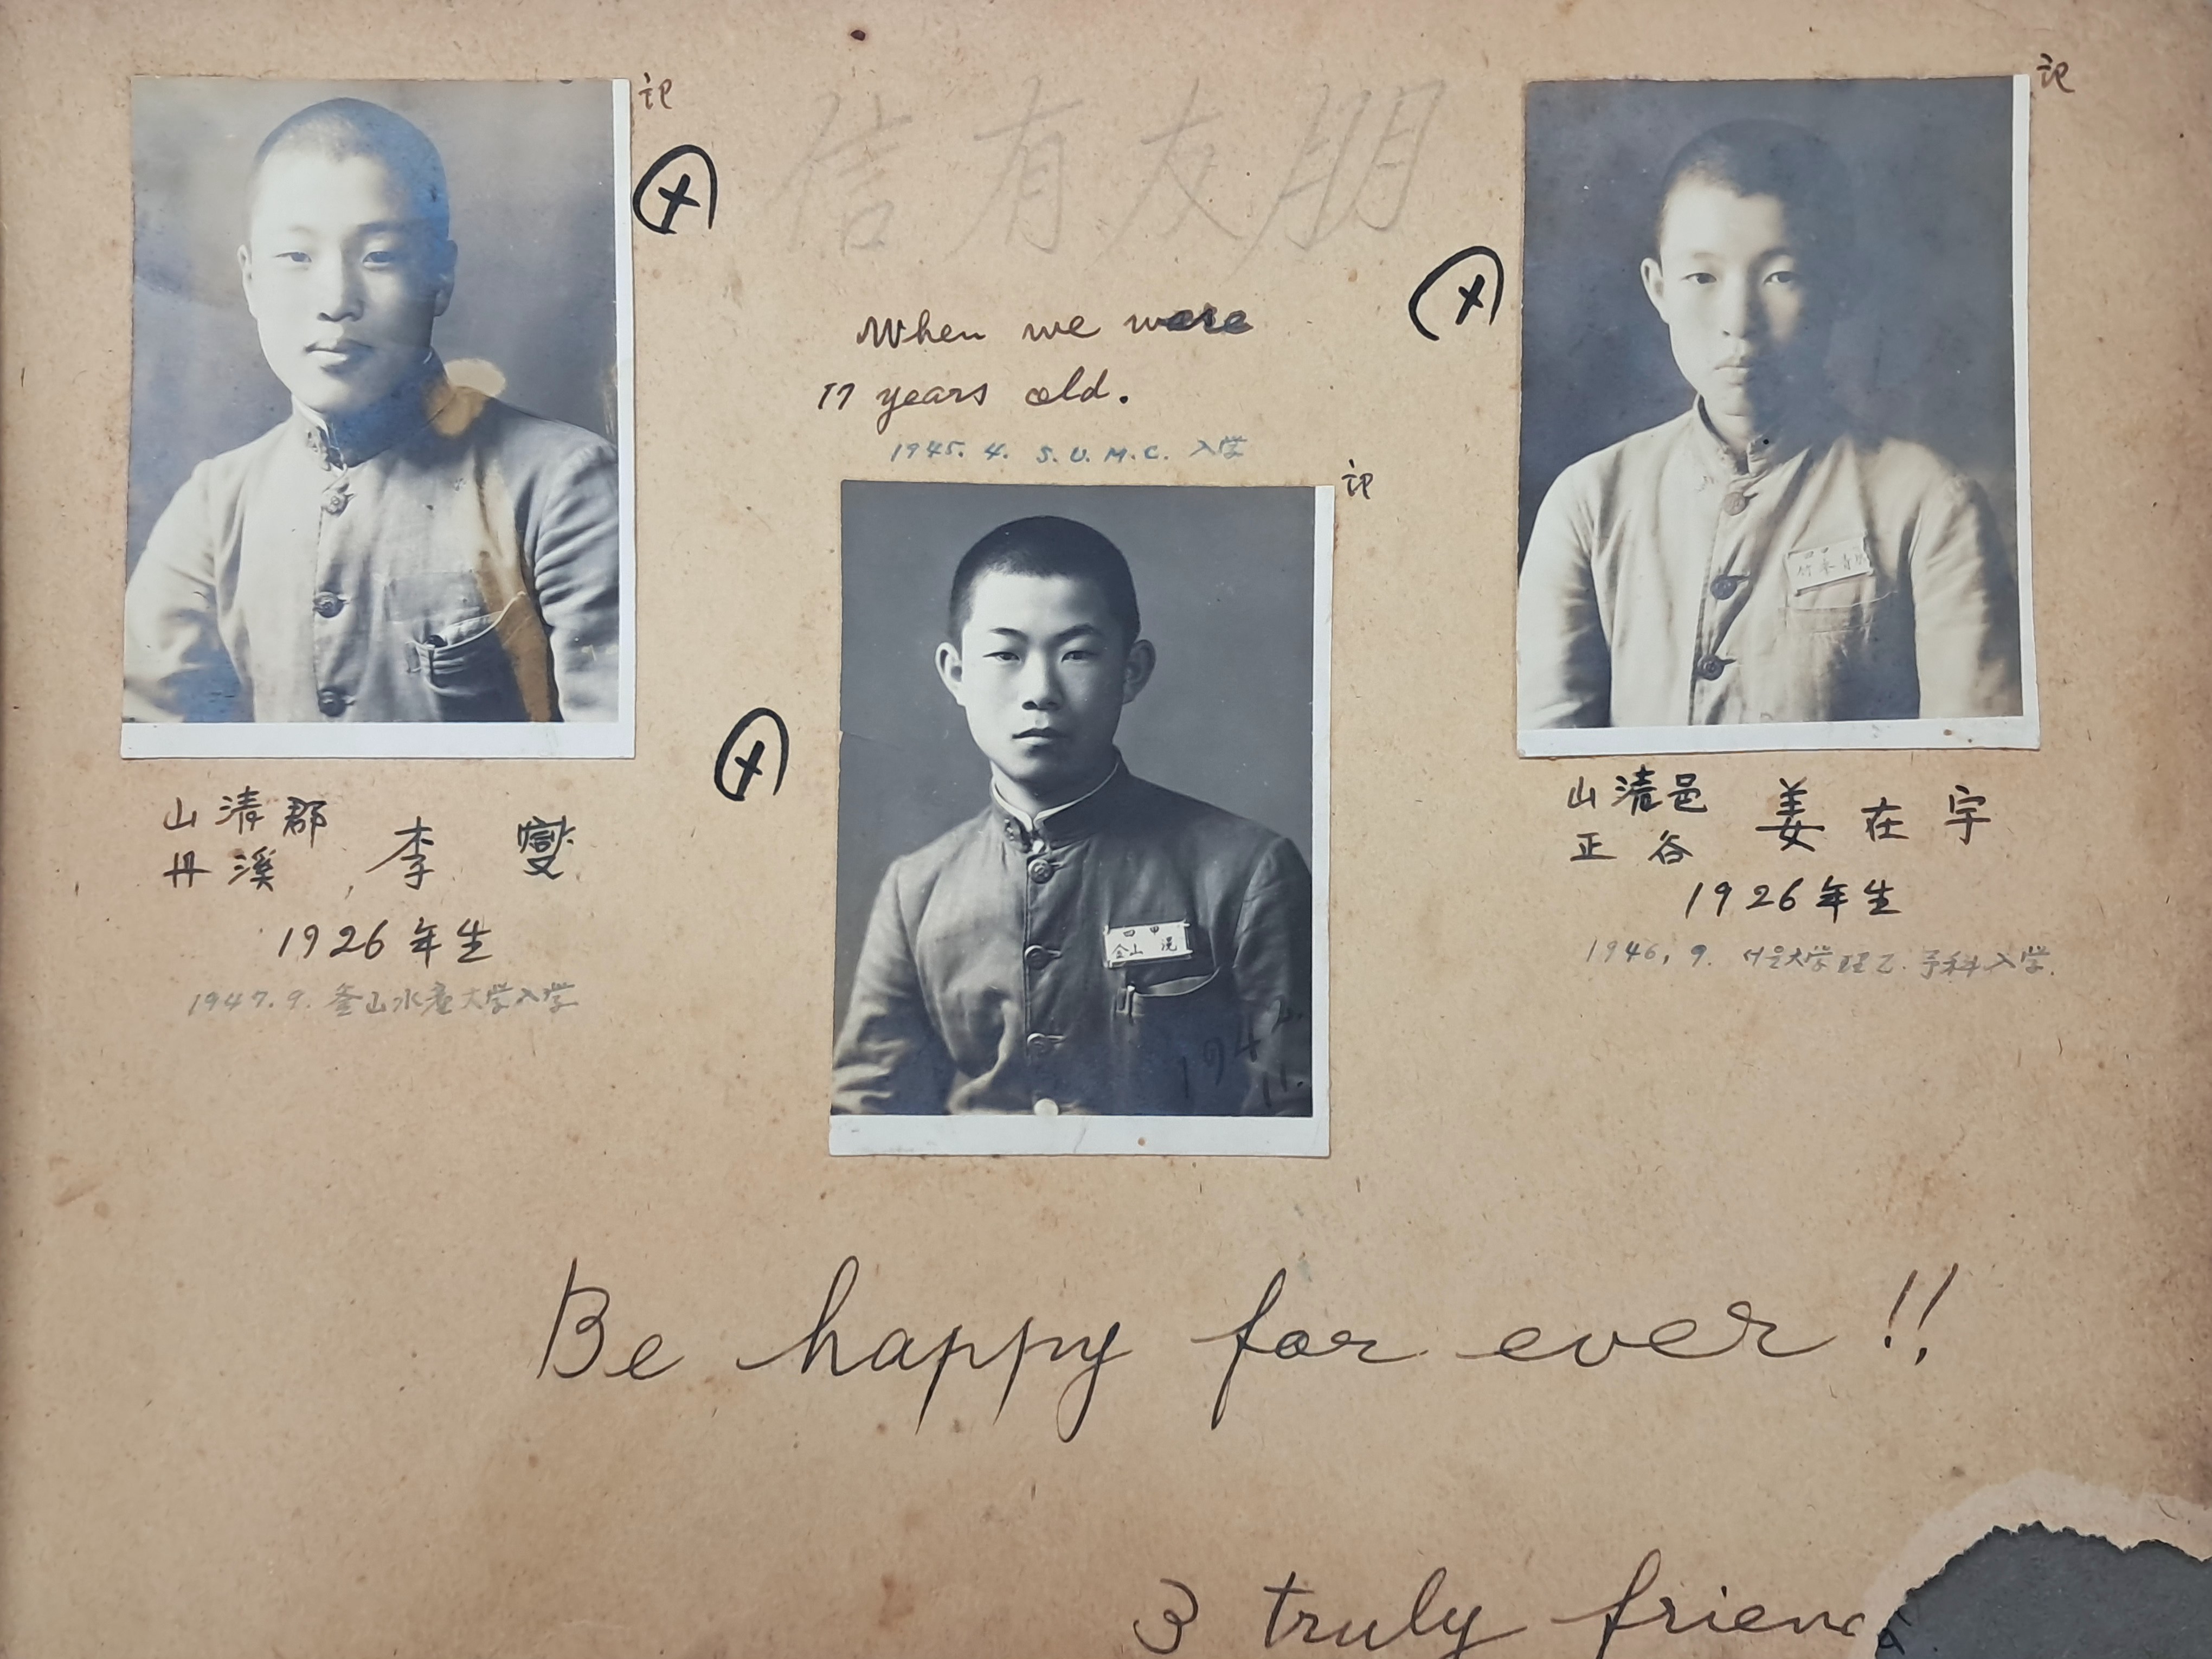 記
記
信有友朋
When we were
17 years old.
1945. 4. S.U.M.C. 入学
記
四甲
金山 滉
194
11.
山清郡
丹溪
李 燮
1926年生
1947.9. 釜山水産大学入学
山清邑
正谷
姜在宇
1926年生
1946. 9. 서울大学 理乙. 予科入学.
四甲
竹本
Be happy for ever!!
3 truly frien